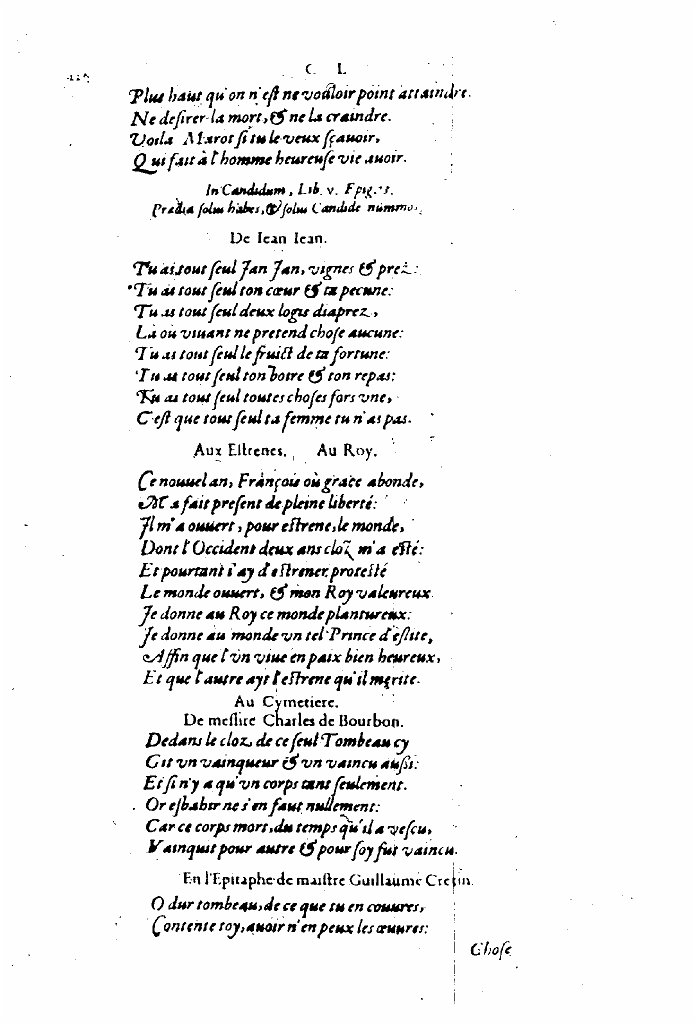 C L
Plus haut qu'on n'est ne vouloir point attaindre.
Ne desirer la mort, & ne la craindre.
Voila Marot si tu le veux sçauoir,
Qui fait à l'homme heureuse vie auoir.
In Candidum, Lib. v. Epig.
Prædia solus habes, & solus Candide nummos,
De Iean Iean.
Tu as tout seul Jan Jan, vignes & prez:
Tu as tout seul ton cœur & ta pecune:
Tu as tout seul deux logis diaprez,
Là où viuant ne pretend chose aucune:
Tu as tout seul le fruict de ta fortune:
Tu as tout seul ton boire & ton repas:
Tu as tout seul toutes choses fors vne,
C'est que tout seul ta femme tu n'as pas.
Aux Estrenes. Au Roy.
Ce nouuel an, François où grace abonde,
M'a fait present de pleine liberté:
Il m'a ouuert, pour estrene, le monde,
Dont l'Occident deux ans cloz m'a esté:
Et pourtant i'ay d'estrener protesté
Le monde ouuert, & mon Roy valeureux.
Je donne au Roy ce monde plantureux:
Je donne au monde vn tel Prince d'eslite,
Affin que l'vn viue en paix bien heureux,
Et que l'autre ayt l'estrene qu'il merite.
Au Cymetiere.
De messire Charles de Bourbon.
Dedans le cloz de ce seul Tombeau cy
Git vn vainqueur & vn vaincu aussi:
Et si n'y a qu'vn corps tant seulement.
Or esbahir ne s'en faut nullement:
Car ce corps mort, du temps qu'il a vescu,
Vainquit pour autre & pour soy fut vaincu.
En l'Epitaphe de maistre Guillaume Cretin.
O dur tombeau, de ce que tu en couures,
Contente toy, auoir n'en peux les œuures:
Chose